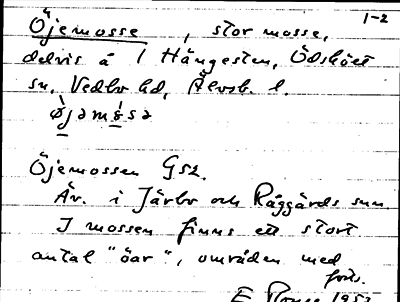 1-2
Öjemosse, stor mosse,
delvis å 1 Hängesten, Ödskölt
sn, Vedbo hd, Älvsb. l.
Öjemossen GSZ.
Äv. i Järbo och Råggärds snn
I mossen finns ett stort
antal "öar", områden med
forts.
E 1953